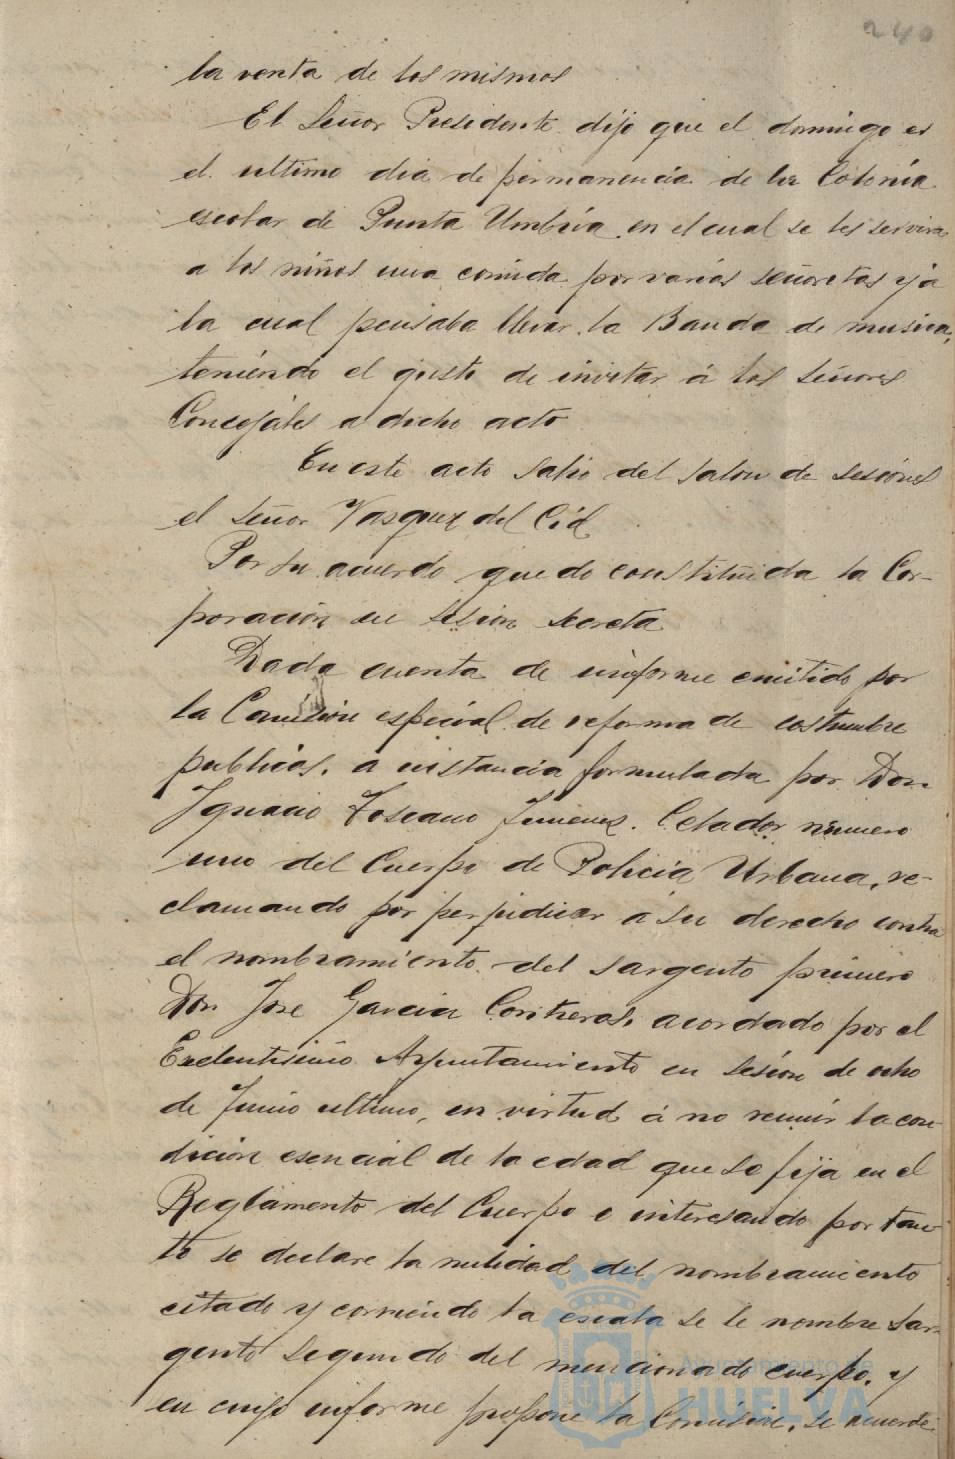 240
la venta de los mismos
El Señor Presidente dijo que el domingo es
el ultimo dia de permanencia de la Colonia
escolar de Punta Umbria en el cual se les servira
a los niños una comida por varias señoritas y á
la cual pensaba llevar la Banda de musica,
teniendo el gusto de invitar á los Señores
Concejales a dicho acto
En este acto salio del salon de sesiones
el Señor Vasquez del Cid
Por su acuerdo quedo constituida la Cor-
poracion en sesion secreta
Dada cuenta de informe emitido por
la Comision especial de reforma de costumbre
publicas, a instancia formulada por Don
Ignacio Toscano Jimenez, Celador numero
uno del Cuerpo de Policia Urbana, re-
clamando por perjudicar a su derecho contra
el nombramiento del sargento primero
Don Jose Garcia Contreras, acordado por el
Exelentisimo Ayuntamiento en sesion de ocho
de Junio ultimo, en virtud á no reunir la con-
dicion esencial de la edad que se fija en el
Reglamento del Cuerpo e interesando por tan-
to se declare la nulidad del nombramiento
citado y corriendo la escala se le nombre Sar-
gento Segundo del mencionado cuerpo, y
en cuyo informe propone la Comision, se acuerde
Ayuntamiento de
HUELVA